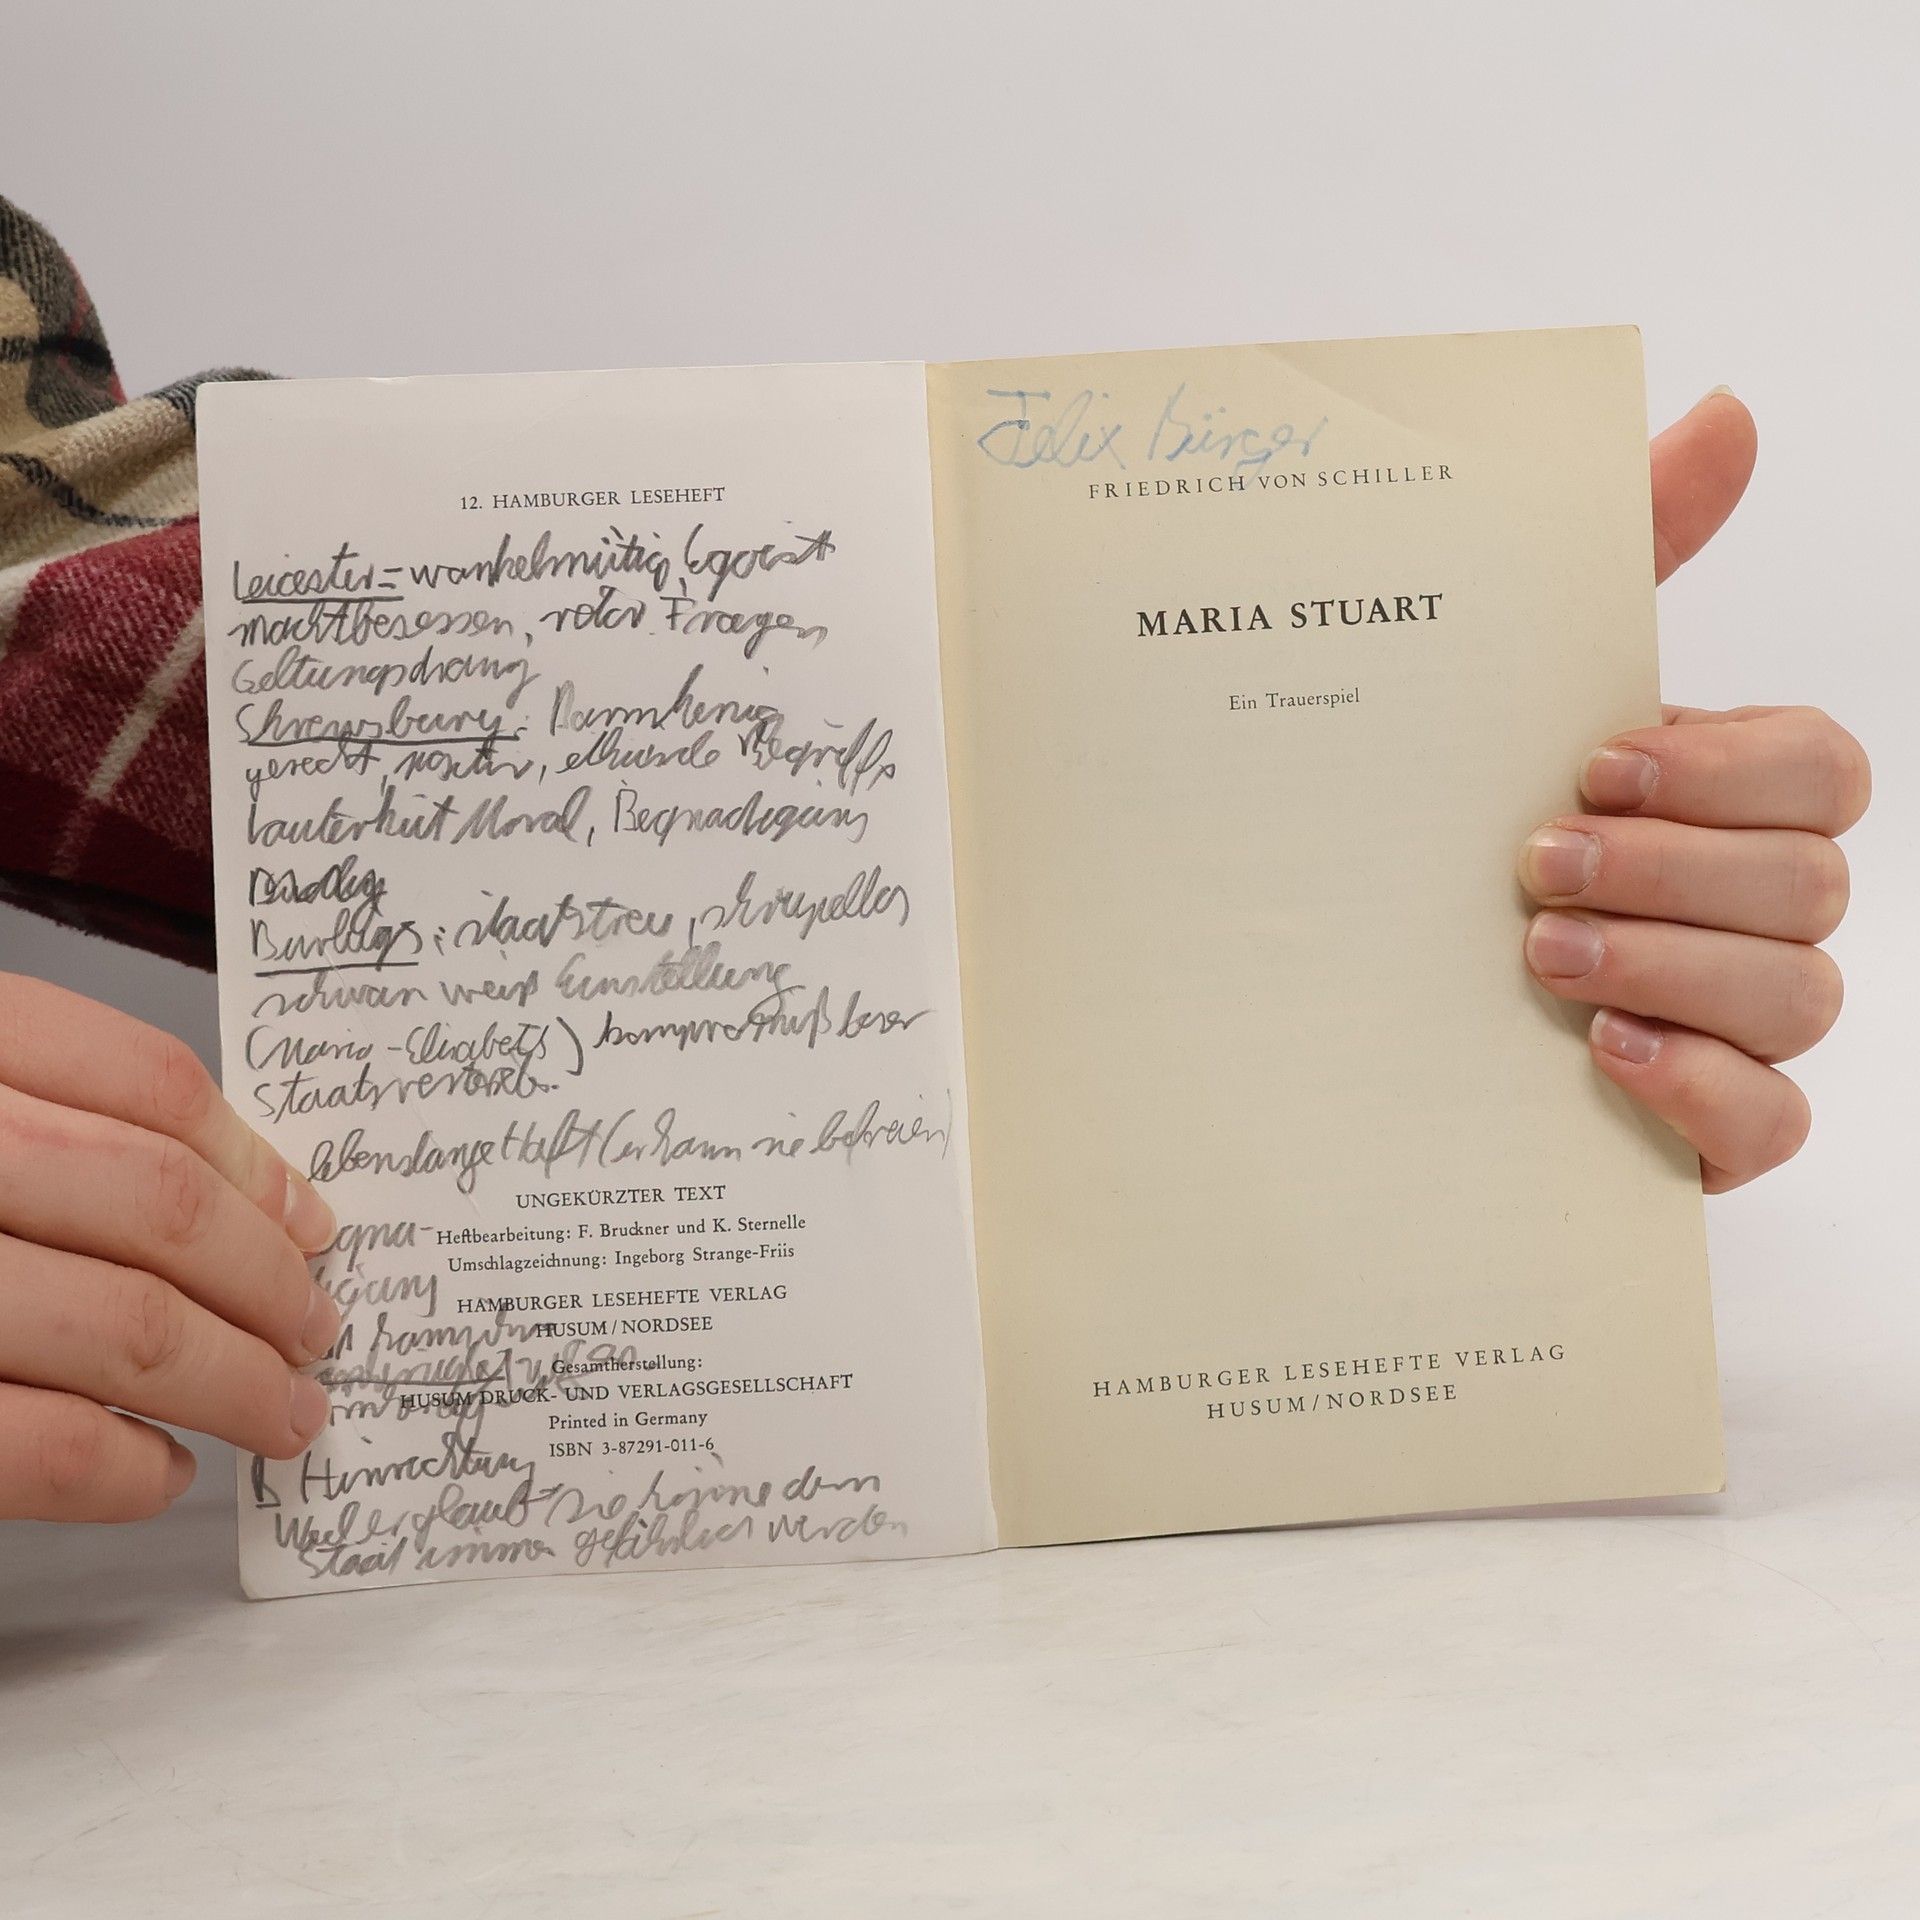 12. HAMBURGER LESEHEFT
Leicester = wankelmütig, Egoist
machtbesessen,
Geltungsdrang
Shrewsbury:
gerecht, positiv, Begriffe
Lauterkeit Moral, Begnadigung
: staatstreu, skrupellos
schwarz weiß Einstellung
(Maria - Elisabeth)
lebenslange Haft (er kann sie befreien)
UNGEKÜRZTER TEXT
Heftbearbeitung: F. Bruckner und K. Sternelle
Umschlagzeichnung: Ingeborg Strange-Friis
HAMBURGER LESEHEFTE VERLAG
HUSUM/NORDSEE
Gesamtherstellung:
HUSUM DRUCK- UND VERLAGSGESELLSCHAFT
Printed in Germany
ISBN 3-87291-011-6
B Hinrichtung
Weil er glaubt sie könne dem
Staat immer gefährlich werden
Felix Bürger
FRIEDRICH VON SCHILLER
MARIA STUART
Ein Trauerspiel
HAMBURGER LESEHEFTE VERLAG
HUSUM/NORDSEE